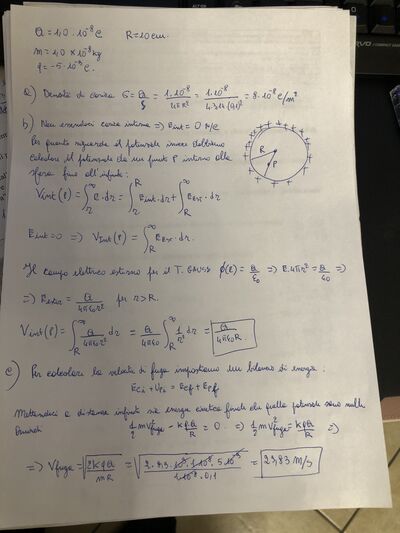 Q = 1,0 · 10⁻⁸ C R = 10 cm.
m = 1,0 × 10⁻⁸ kg
q = -5 · 10⁻⁹ C.
a) Densità di carica σ = Q/S = 1·10⁻⁸/4πR² = 1·10⁻⁸/4·3,14(0,1)² = 8·10⁻⁸ C/m²
b) Non essendoci carica interna => Eint = 0 N/C
Per quanto riguarda il potenziale invece dobbiamo
calcolare il potenziale da un punto P interno alla
sfera fino all'infinito:
R
P
Vint(P) = ∫_r^∞ E · dr = ∫_r^R Eint · dr + ∫_R^∞ Eest · dr
Eint = 0 => Vint(P) = ∫_R^∞ Eest · dr.
Il campo elettrico esterno per il T. GAUSS ϕ(E) = Q/ε₀ => E·4πr² = Q/ε₀ =>
=> Eest = Q/4πε₀r² per r > R.
Vint(P) = ∫_R^∞ Q/4πε₀r² dr = Q/4πε₀ ∫_R^∞ 1/r² dr = Q/4πε₀R
c) Per calcolare la velocità di fuga impostiamo un bilancio di energia:
Eci + Upi = Ecf + Epf
Mettendoci a distanze infinite sia energia cinetica finale che quella potenziale sono nulle
1/2 mV²fuga - kqQ/R = 0 => 1/2 mV²fuga = kqQ/R =>
=> Vfuga = √(2kqQ/mR) = = 23,83 m/s